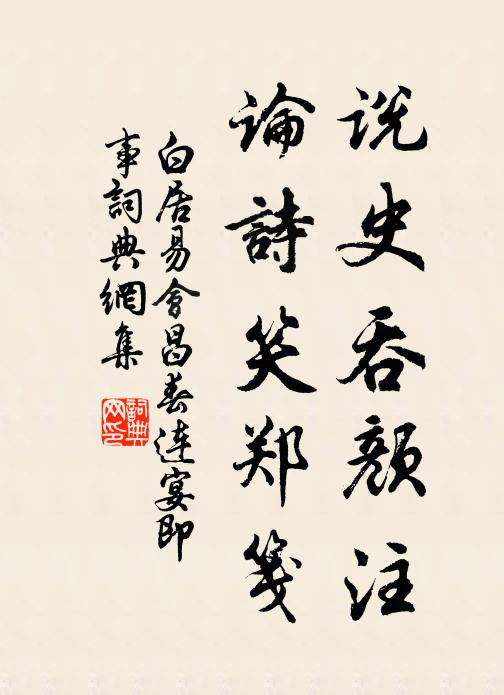 说史吞颜注
論詩笑郑箋
白居易會昌春连宴即
事詞典網集
詞典
网印